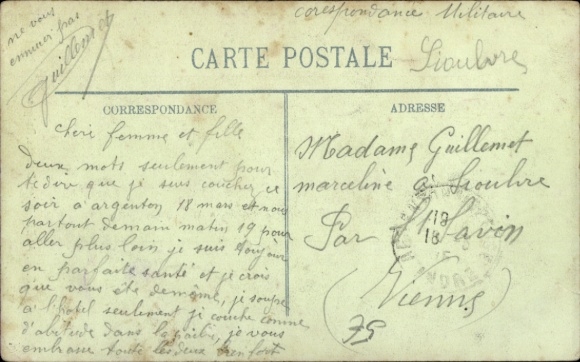 ne vous
ennuier pas
Guillemet
corespondance Militaire
CARTE POSTALE
Lioubvre
CORRESPONDANCE
Cheri femme et fille
Deux mots seulement pour
te dire que je suis coucher ce
soir a argenton 18 mars et nous
partont demain matin 19 pour
aller plus loin je suis toujour
en parfaite santé et je crois
que vous ête de même, je soupe
a l'hotel seulement je couche comme
d'abitude dans la paille, je vous
embrasse toute les deux bien fort
ADRESSE
Madame Guillemet
marceline a Lioubvre
Par St Savin
(Vienne)